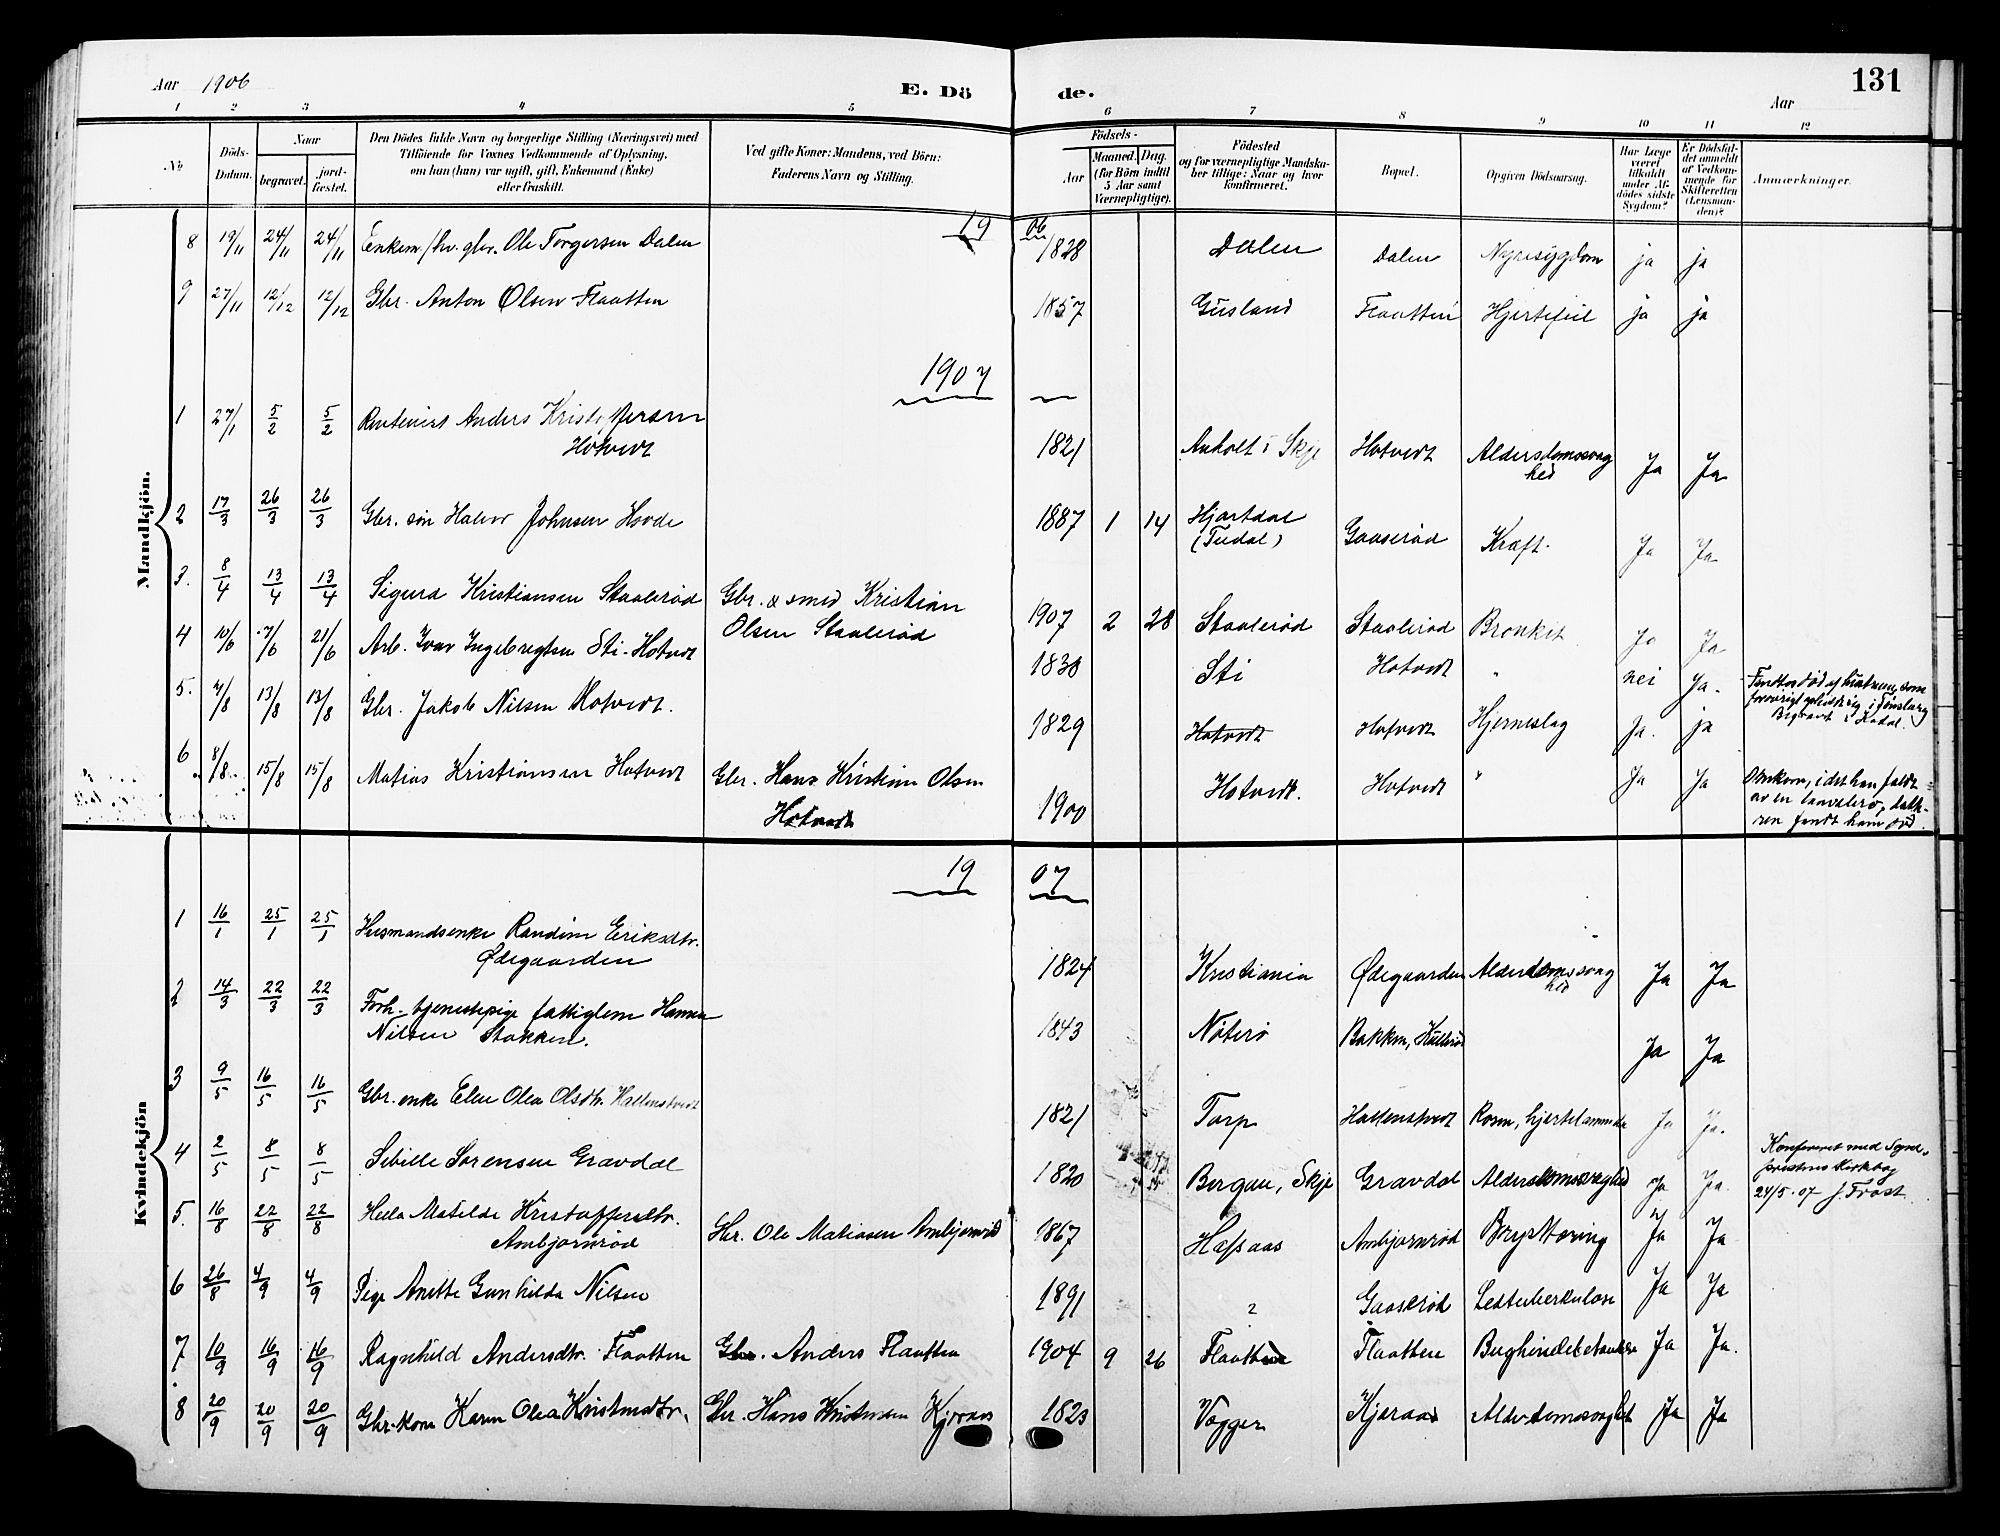 131
Aar 1906 E. Dö de. Aar
1 2 3 4 5 6 7 8 9 10 11 12
No
Döds-Datum.
Naar
begravet.
jord-fæstet.
Den Dödes fulde Navn og borgerlige Stilling (Næringsvei) med
Tilföiende for Voxnes Vedkommende af Oplysning,
om han (hun) var ugift, gift, Enkemand (Enke)
eller fraskilt.
Ved gifte Koner: Mandens, ved Börn:
Faderens Navn og Stilling.
Födsels-
Aar
Maaned. Dag.
(for Börn indtil
5 Aar samt
Værnepligtige).
Födested
og for værnepligtige Mandska-
ber tillige: Naar og hvor
konfirmeret.
Bopæl.
Opgiven Dödsaarsag.
Har Læge
været
tilkaldt
under Af-
dödes sidste
Sygdom?
Er Dödsfal-
det anmeldt
af Vedkom-
mende for
Skifteretten
(Lensman-
den)?
Anmærkninger.
Mandkjön.
19 06
8 19/11 24/11 24/11 Enkem. fhv. gbr. Ole Torgersen Dalen 1828 Dalen Dalen Nyresygdom ja ja
9 27/11 12/12 12/12 Gbr. Anton Olsen Flaatten 1857 Gusland Flaatten Hjertefeil ja ja
1907
1 27/1 5/2 5/2 Rentenist Anders Kristoffersen
Hotvedt 1821 Anholt i Skje Hotvedt Aldersdomssvag
hed Ja Ja
2 17/3 26/3 26/3 Gbr. søn Halvor Johnsen Hovde 1887 1 14 Hjartdal
(Tudal) Gaaserød Kræft. Ja Ja
3. 8/4 13/4 13/4 Sigurd Kristiansen Staalerød Gbr. & smed Kristian
Olsen Staalerød 1907 2 28 Staalerød Staalerød Bronkit Ja Ja
4 10/6 7/6 21/6 Arb. Ivar Ingebregtsen Sti-Hotvedt 1830 Sti Hotvedt " nei Ja. Fandtes død
i Tønsberg
Begravt i Kodal.
5. 7/8 13/8 13/8 Gbr. Jakob Nilsen Hotvedt. 1829 Hotvedt Hotvedt Hjerneslag Ja. ja
6 8/8 15/8 15/8 Matias Kristiansen Hotvedt Gbr. Hans Kristian Olsen
Hotvedt 1900 Hotvedt. Hotvedt " Ja Ja Omkom, idet han faldt
av en laavebro,
fandt ham død.
Kvindekjön
19 07
1 16/1 25/1 25/1 Husmandsenke Randine Eriksdtr.
Ødegaarden 1824 Kristiania Ødegaarden Alderdomssvag
hed Ja Ja
2 14/3 22/3 22/3 Forh. tjenestepige fattiglem Hanna
Nilsen Stokken. 1843 Nøterø Bakken, Kullerød Ja Ja
3 9/5 16/5 16/5 Gbr. enke Elen Olea Olsdtr. Hallenstvedt 1821 Torp Hallenstvedt Rosen, hjertelammelse Ja Ja.
4 2/5 8/5 8/5 Sibille Sørensen Gravdal 1820 Bergan, Skje Gravdal Alderdomssvaghed Ja Ja Konfereret med Sogne-
prestens Kirkebog
24/5.07 J. Frost
5. 16/8 22/8 22/8 Hella Matilde Kristoffersdtr.
Ambjørnrød Gbr. Ole Matiasen Ambjørnrød 1867 Hafsaas Ambjørnrød Brysttæring Ja Ja
6 26/8 4/9 4/9 Pige Anette Gunhilda Nilsen 1891 ? Gaaserød Ledtuberkulose Ja Ja
7 10/9 16/9 16/9 Ragnhild Andersdtr. Flaatten Gbr. Anders Flaatten 1904 9 26 Flaatten Flaatten Bughindebetændelse Ja Ja.
8 20/9 20/9 20/9 Gbr. kone Karen Olea Kristensdtr. Gbr. Hans Kristensen Kjøraas 1823 Vegger Kjøraas Alderdomssvaghet Ja Ja